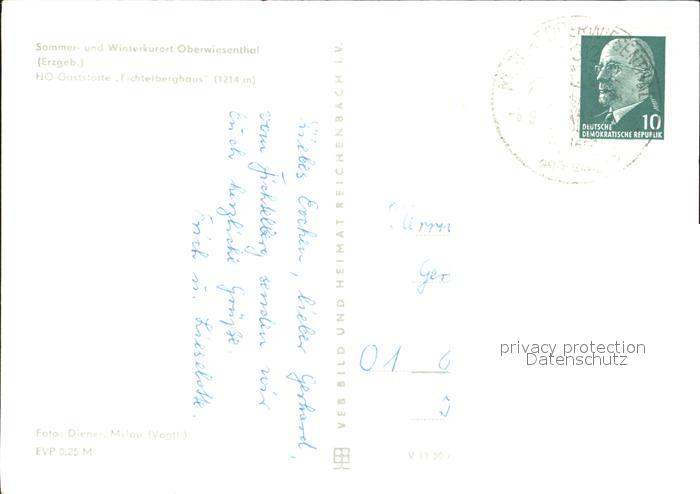 Sommer- und Winterkurort Oberwiesenthal
(Erzgeb.)
HO-Gaststätte „Fichtelberghaus" (1214 m)
Liebes Evchen, lieber Gerhard,
vom Fichtelberg senden wir
Euch herzliche Grüße.
Erich u. Lieselotte.
Foto: Diener, Mylau (Vogtl.)
EVP 0,25 M
VEB BILD UND HEIMAT REICHENBACH I.V.
V 11 50
OBERWIESENTHAL
10
DEUTSCHE
DEMOKRATISCHE REPUBLIK
Ger
01
privacy protection
Datenschutz